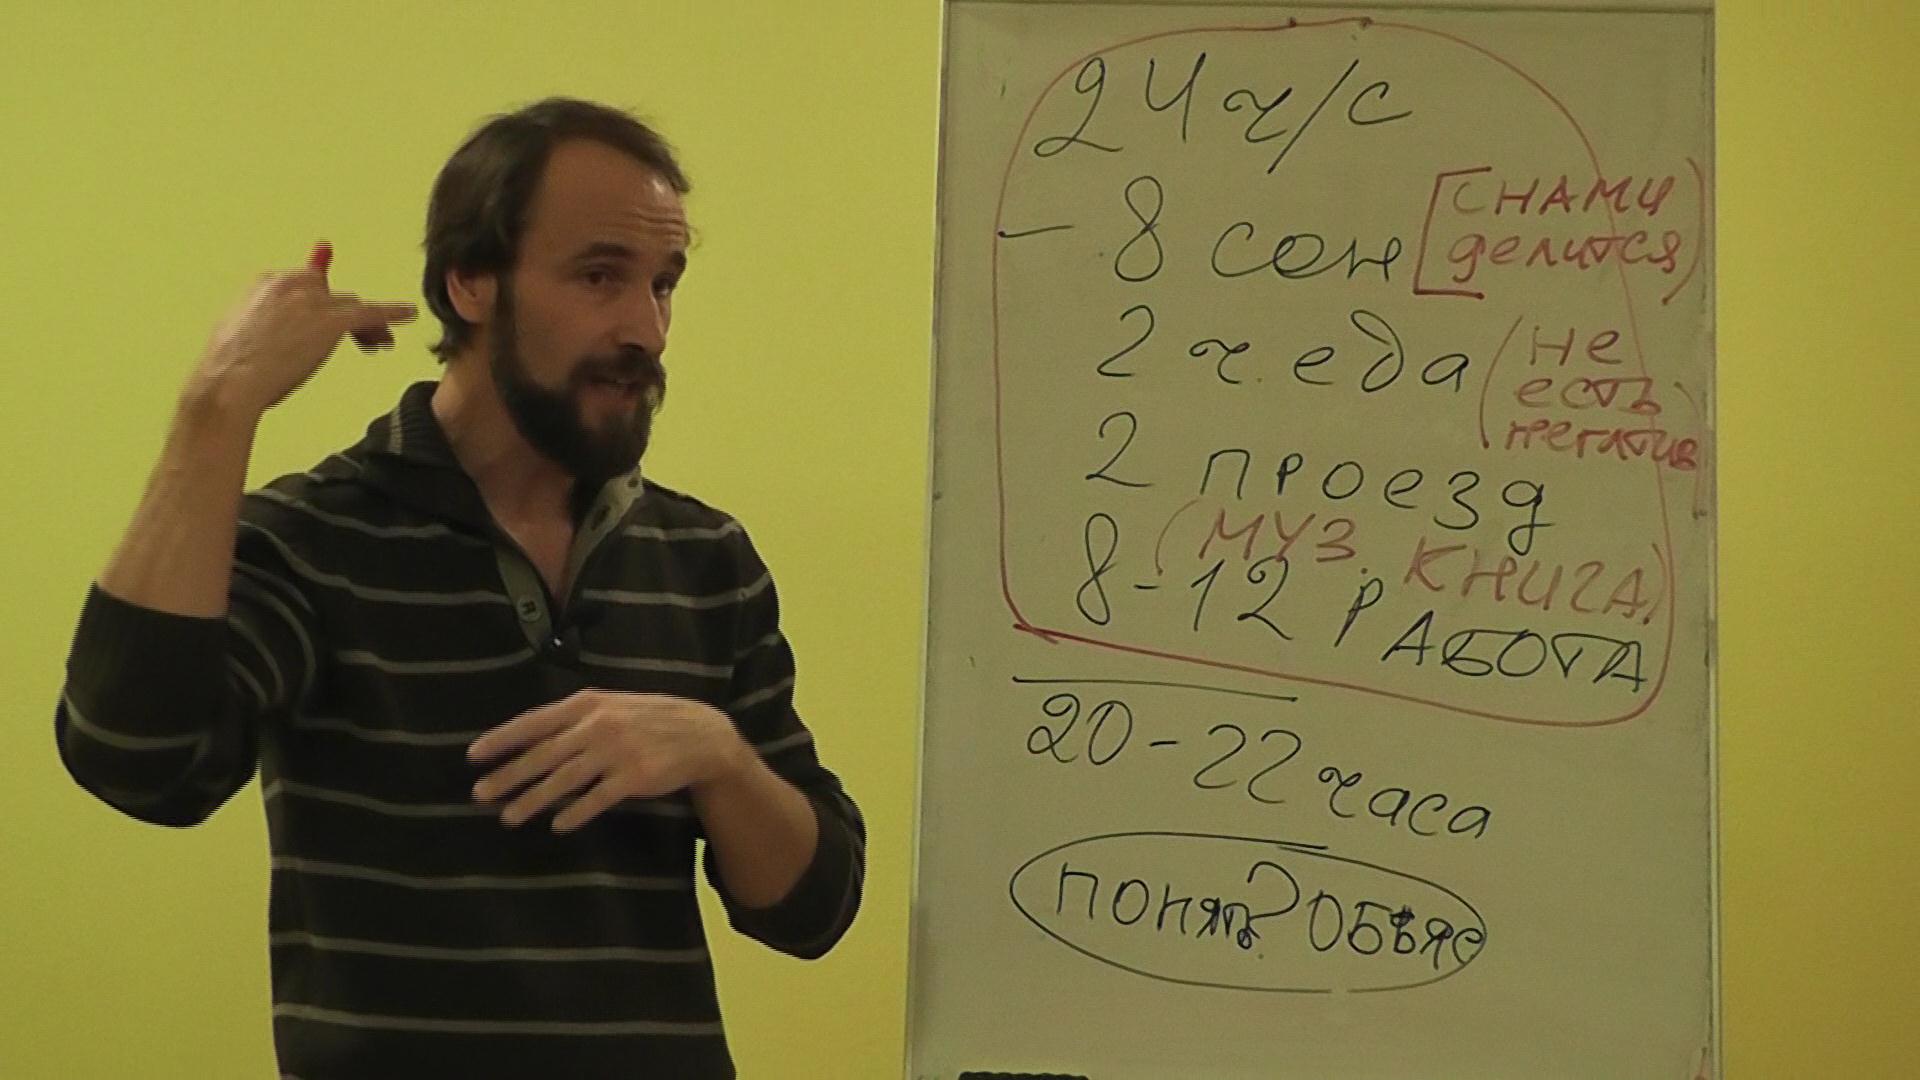 24 ч/с
- 8 сон [снами делится)
2 ч. еда (не есть негатив)
2 проезд
(муз. книга)
8-12 работа
20-22 часа
понять? объяс